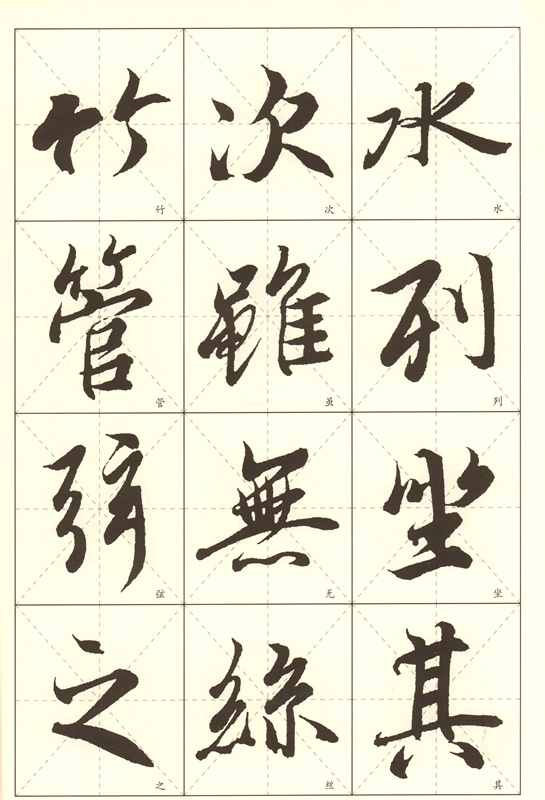 水列坐其
水列坐其
次雖無絲
次虽无丝
竹管弦之
竹管弦之